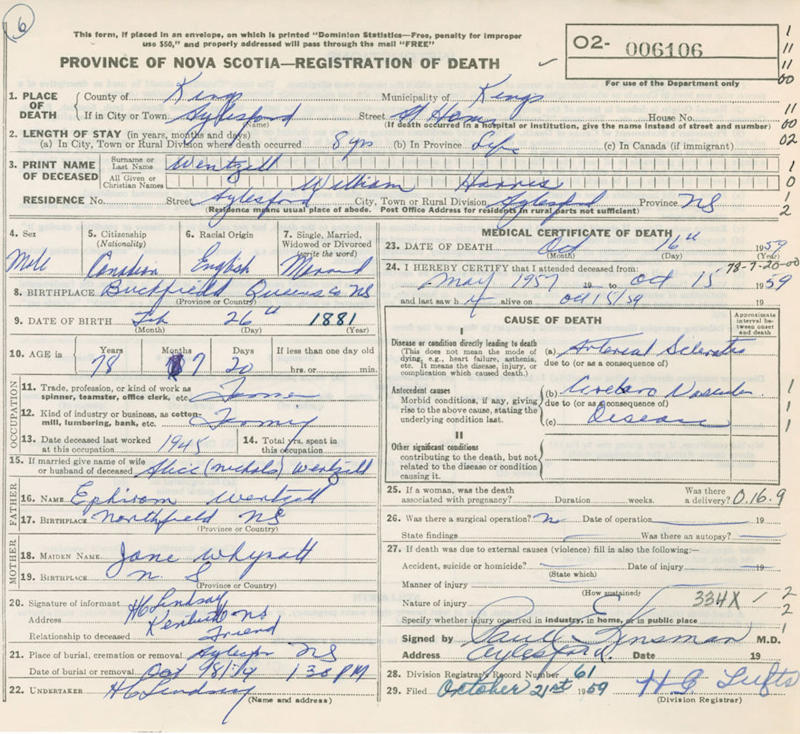 6
This form, if placed in an envelope, on which is printed "Dominion Statistics—Free, penalty for improper
use $50," and properly addressed will pass through the mail "FREE"
PROVINCE OF NOVA SCOTIA—REGISTRATION OF DEATH
02- 006106
For use of the Department only
1. PLACE OF DEATH County of Kings Municipality of Kings
If in City or Town Aylesford Street House No.
(Name) (If death occurred in a hospital or institution, give the name instead of street and number)
2. LENGTH OF STAY (in years, months and days)
(a) In City, Town or Rural Division where death occurred 8 yrs (b) In Province Life (c) In Canada (if immigrant)
3. PRINT NAME OF DECEASED Surname or Last Name Wentzell
All Given or Christian Names William Harris
RESIDENCE No. Street Aylesford City, Town or Rural Division Aylesford Province NS
(Residence means usual place of abode. Post Office Address for residents in rural parts not sufficient)
4. Sex 5. Citizenship (Nationality) 6. Racial Origin 7. Single, Married, Widowed or Divorced (write the word)
Male Canadian English Married
8. BIRTHPLACE Buckfield Queens Co NS
(Province or Country)
9. DATE OF BIRTH Feb 26th 1881
(Month) (Day) (Year)
10. AGE is Years Months Days If less than one day old
78 7 20 hrs. or min.
OCCUPATION
11. Trade, profession, or kind of work as spinner, teamster, office clerk, etc. Farmer
12. Kind of industry or business, as cotton-mill, lumbering, bank, etc. Farming
13. Date deceased last worked at this occupation 1945 14. Total yrs. spent in this occupation
15. If married give name of wife or husband of deceased Alice (Nichols) Wentzell
FATHER
16. NAME Ephirom Wentzell
17. BIRTHPLACE Northfield NS
(Province or Country)
MOTHER
18. MAIDEN NAME Jane Whynott
19. BIRTHPLACE N. S
(Province or Country)
20. Signature of informant HC Lindsay
Address Kentville NS
Relationship to deceased Friend
21. Place of burial, cremation or removal NS
Date of burial or removal Oct 1 30 PM
22. UNDERTAKER HC Lindsay
(Name and address)
MEDICAL CERTIFICATE OF DEATH
23. DATE OF DEATH Oct 16th 1959
(Month) (Day) (Year)
78-7-20-00
24. I HEREBY CERTIFY that I attended deceased from:
May 1957 19 to Oct 15 1959
and last saw h alive on Oct 15/59 19
CAUSE OF DEATH
Approximate interval between onset and death
I
Disease or condition directly leading to death
(This does not mean the mode of dying, e.g., heart failure, asthenia, etc. It means the disease, injury, or complication which caused death.)
(a) Arterial Sclerosis
due to (or as a consequence of)
Antecedent causes
Morbid conditions, if any, giving rise to the above cause, stating the underlying condition last.
(b) Cerebro Vascular
due to (or as a consequence of)
(c) Disease
II
Other significant conditions
contributing to the death, but not related to the disease or condition causing it.
25. If a woman, was the death associated with pregnancy? Duration weeks. Was there a delivery? 0.16.9
26. Was there a surgical operation? N Date of operation 19
State findings Was there an autopsy?
27. If death was due to external causes (violence) fill in also the following:—
Accident, suicide or homicide? Date of injury 19
(State which)
Manner of injury
(How sustained)
Nature of injury 334X
Specify whether injury occurred in industry, in home, or in public place
Signed by Paul E Kinsman M.D.
Address Aylesford. Date 19
28. Division Registrar's Record Number 61
29. Filed October 21st 1959 H G Lufts
(Division Registrar)